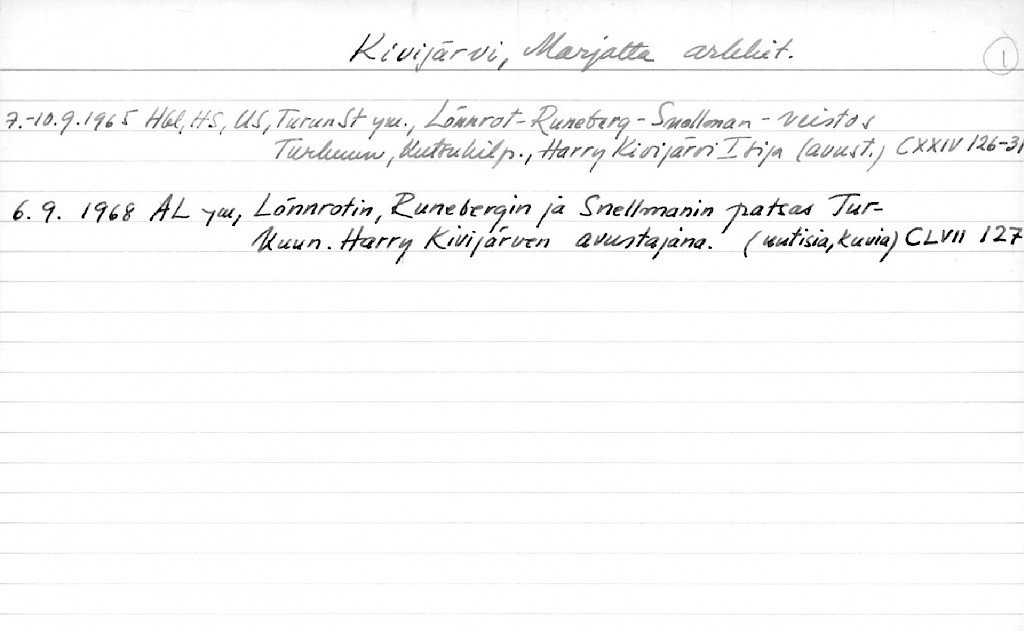 Kivijärvi, Marjatta arkkit. 1
7.-10.9.1965 Hbl, HS, US, TurunSt ym., Lönnrot-Runeberg-Snellman-veistos
Turkuun, kutsukilp., Harry Kivijärvi I sija (avust.) CXXIV 126-31
6. 9. 1968 AL ym, Lönnrotin, Runebergin ja Snellmanin patsas Tur-
kuun. Harry Kivijärven avustajana. (uutisia, kuvia) CLVII 127